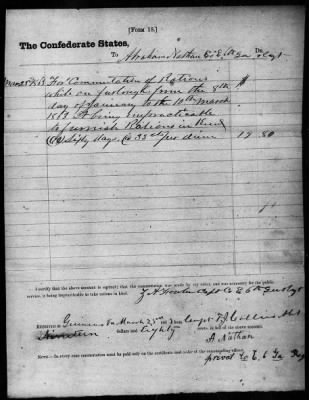 [FORM 18.]
The Confederate States,
To Abraham Nathan Co E 6th Ga Regt Dr.
For Commutation of Rations $
while on furlough from the 8th
day of January to the 10th March
1863 It being impracticable
to furnish Rations in Kind
(60) Sixty days, @ 33 cts per diem 19 80
I certify that the above account is correct; that the commutation was made by my order, and was necessary for the public
service, it being impracticable to take rations in kind.
Capt Co E 6th Ga Regt
RECEIVED at March 25th 1863 from Capt
Nineteen dollars and Eighty cents, in full of the above account.
A. Nathan
NOTE.—In every case commutation must be paid only on the certificate and order of the commanding officer.
privat Co E. 6 Ga Reg